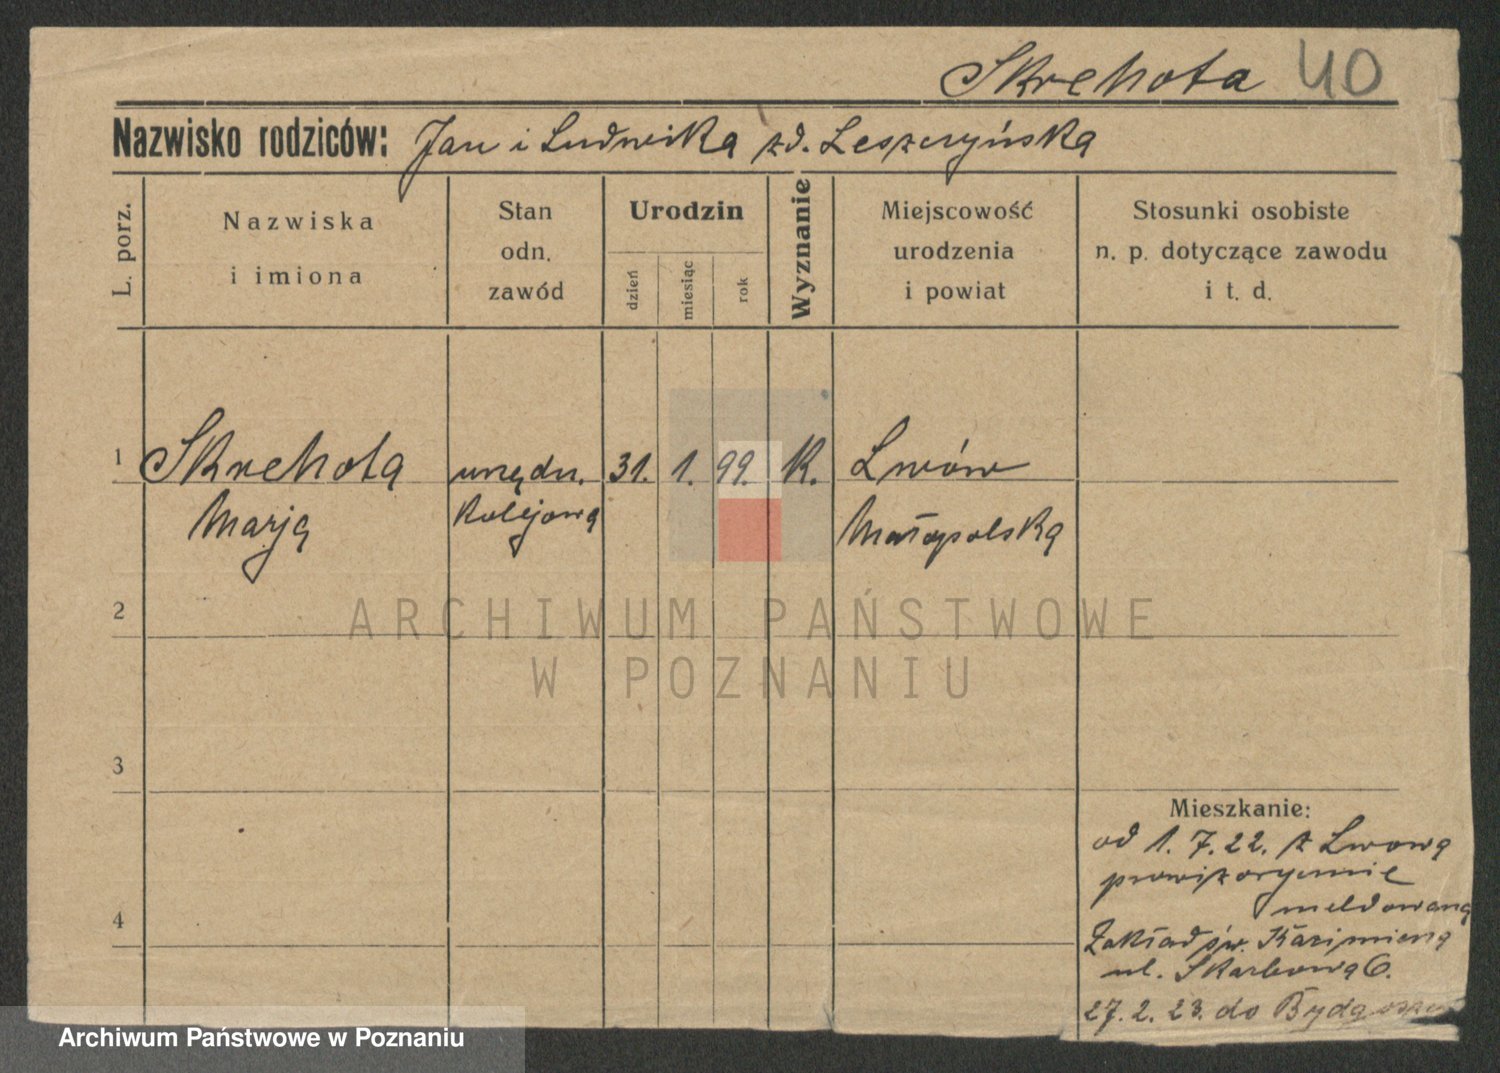 Skrehota 40
Nazwisko rodziców: Jan i Ludwika zd. Leszczyńska
L. porz.
Nazwiska
i imiona
Stan
odn.
zawód
Urodzin
dzień
miesiąc
rok
Wyznanie
Miejscowość
urodzenia
i powiat
Stosunki osobiste
n. p. dotyczące zawodu
i t. d.
1 Skrehota urzędn. 31. 1. 99. K. Lwów
Marja kolejowa Małopolska
2
ARCHIWUM PAŃSTWOWE
W POZNANIU
3
Mieszkanie:
od 1. 7. 22. z Lwowa
prowizorycznie
meldowana
4
Zakład św. Kazimierza
ul. Skarbowa 6.
27. 2. 23. do Bydgoszczy
Archiwum Państwowe w Poznaniu